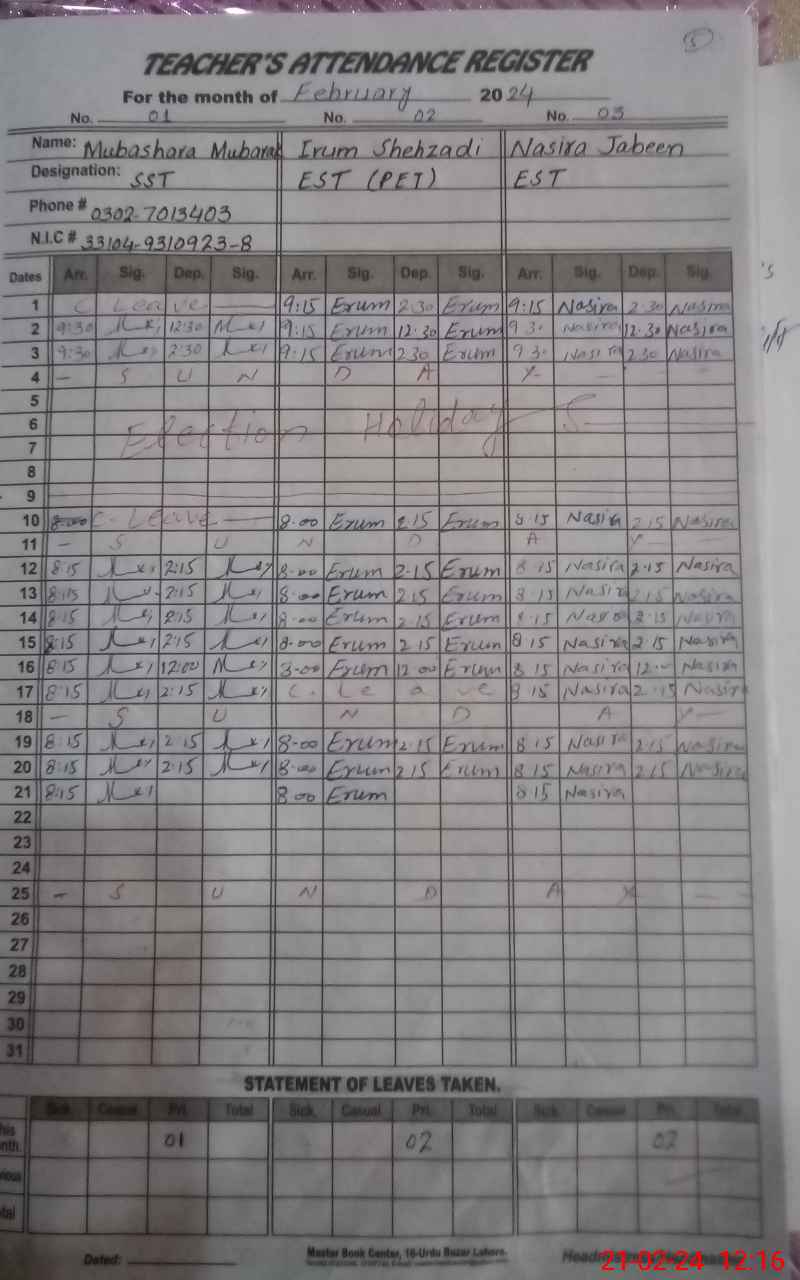 5
TEACHER'S ATTENDANCE REGISTER
For the month of February 2024
No. 01 No. 02 No. 03
Name: Mubashara Mubarak Irum Shehzadi Nasira Jabeen
Designation: SST EST (PET) EST
Phone # 0302-7013403
N.I.C # 33104-9310923-8
Dates Arr. Sig. Dep. Sig. Arr. Sig. Dep. Sig. Arr. Sig. Dep. Sig.
1 C Leave 9:15 Erum 2:30 Erum 9:15 Nasira 2:30 Nasira
2 9:30 12:30 9:15 Erum 12:30 Erum 9 30 Nasira 12:30 Nasira
3 9:30 2:30 9:15 Erum 2:30 Erum 9 30 Nasira 2:30 Nasira
4 - S U N D A Y -
5
6 Election Holidays
7
8
9
10 C-Leave 8-00 Erum 2:15 Erum 8 15 Nasira 2:15 Nasira
11 - S U N D A Y -
12 8:15 2:15 8-00 Erum 2-15 Erum 8 15 Nasira 2-15 Nasira
13 8:15 2:15 8-00 Erum 2 15 Erum 8 15 Nasira 2 15 Nasira
14 8:15 2:15 8-00 Erum 2 15 Erum 8 15 Nasira 2 15 Nasira
15 8:15 2:15 8-00 Erum 2 15 Erum 8 15 Nasira 2 15 Nasira
16 8:15 12:00 8-00 Erum 12 00 Erum 8 15 Nasira 12-00 Nasira
17 8:15 2:15 C. Leave 8 15 Nasira 2-15 Nasira
18 - S U N D A Y -
19 8:15 2:15 8-00 Erum 2:15 Erum 8 15 Nasira 2:15 Nasira
20 8:15 2:15 8-00 Erum 2 15 Erum 8 15 Nasira 2 15 Nasira
21 8:15 8 00 Erum 8 15 Nasira
22
23
24
25 - S U N D A Y -
26
27
28
29
30
31
STATEMENT OF LEAVES TAKEN.
Sick Casual Pri. Total Sick. Casual Pri. Total Sick. Casual Pri. Total
his nth. 01 02 02
vious
tal
Dated: Master Book Center, 16-Urdu Bazar Lahore.
21-02-24 12:16